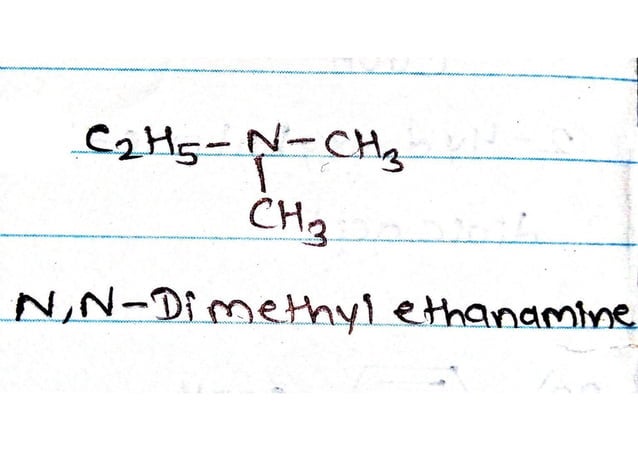 C2H5-N-CH3
|
CH3
N,N-Dimethyl ethanamine